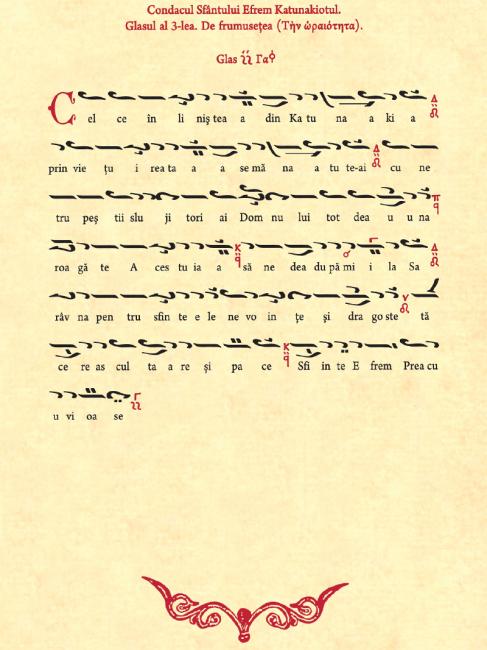 Condacul Sfântului Efrem Katunakiotul.
Glasul al 3-lea. De frumusețea (Τὴν ὡραιότητα).
Glas Γα
Cel ce în li niș tea a din Ka tu na a ki a
prin vie țu i rea ta a a se mă na a tu te-ai cu ne
tru peș tii slu ji tori ai Dom nu lui tot dea u u na
roa gă te A ces tu ia a să ne dea du pă mi i la Sa
râv na pen tru sfin te e le ne vo in țe și dra gos te tă
ce re as cul ta a re și pa ce Sfi in te E frem Prea cu
u vi oa se